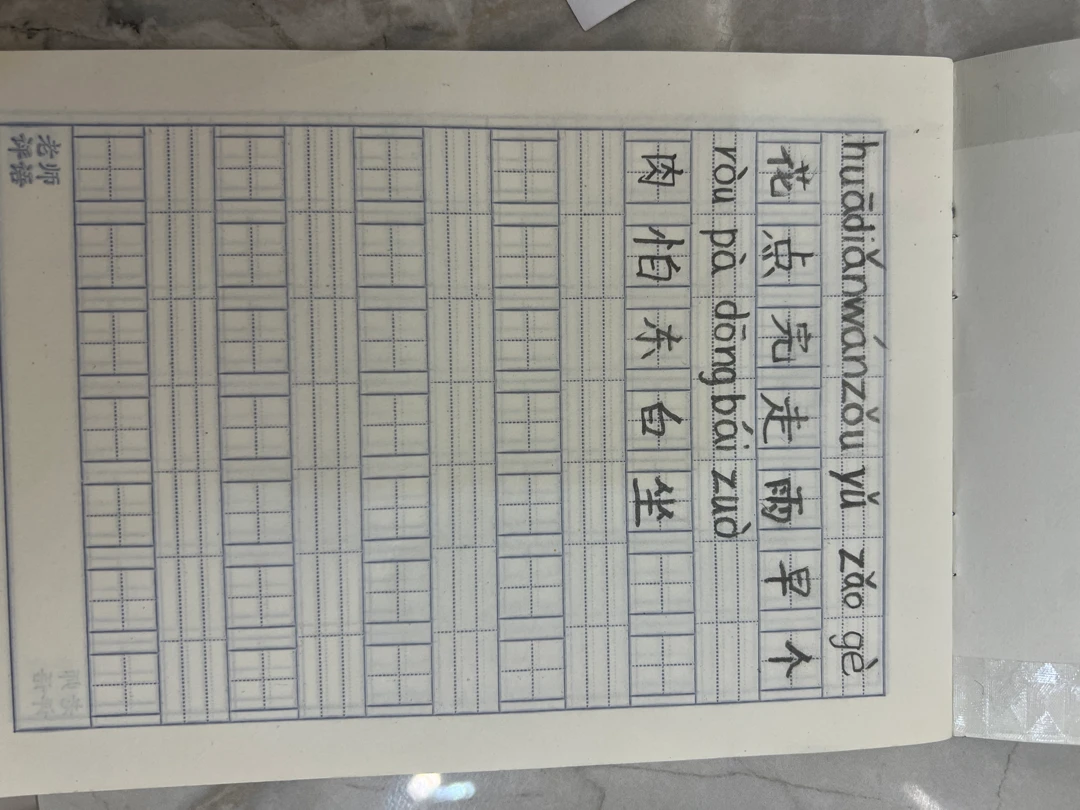 huā diǎn wán zǒu yǔ zǎo gè
花 点 完 走 雨 早 个
ròu pà dōng bái zuò
肉 怕 东 白 坐
老师
评语